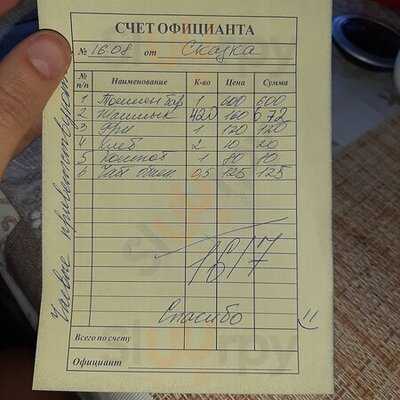 СЧЕТ ОФИЦИАНТА
№ 16.08 от Сказка
№ п/п Наименование К-во Цена Сумма
1 1 600 600
2 Шашлык 420 160 672
3 Фри 1 120 120
4 Хлеб 2 10 20
5 Компот 1 80 80
6 Чай 0,5 125 125
1617
Спасибо !!
Всего по счету
Официант
Чаевые приветствуются